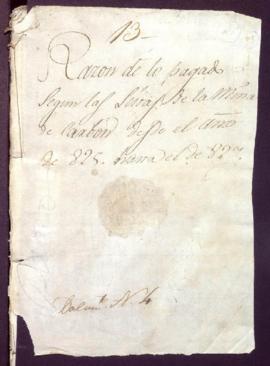 13
Razon de lo pagado
Segun las Listas de la Mina
de Carbon desde el Año
de 825. hasta el de 82
N. 4